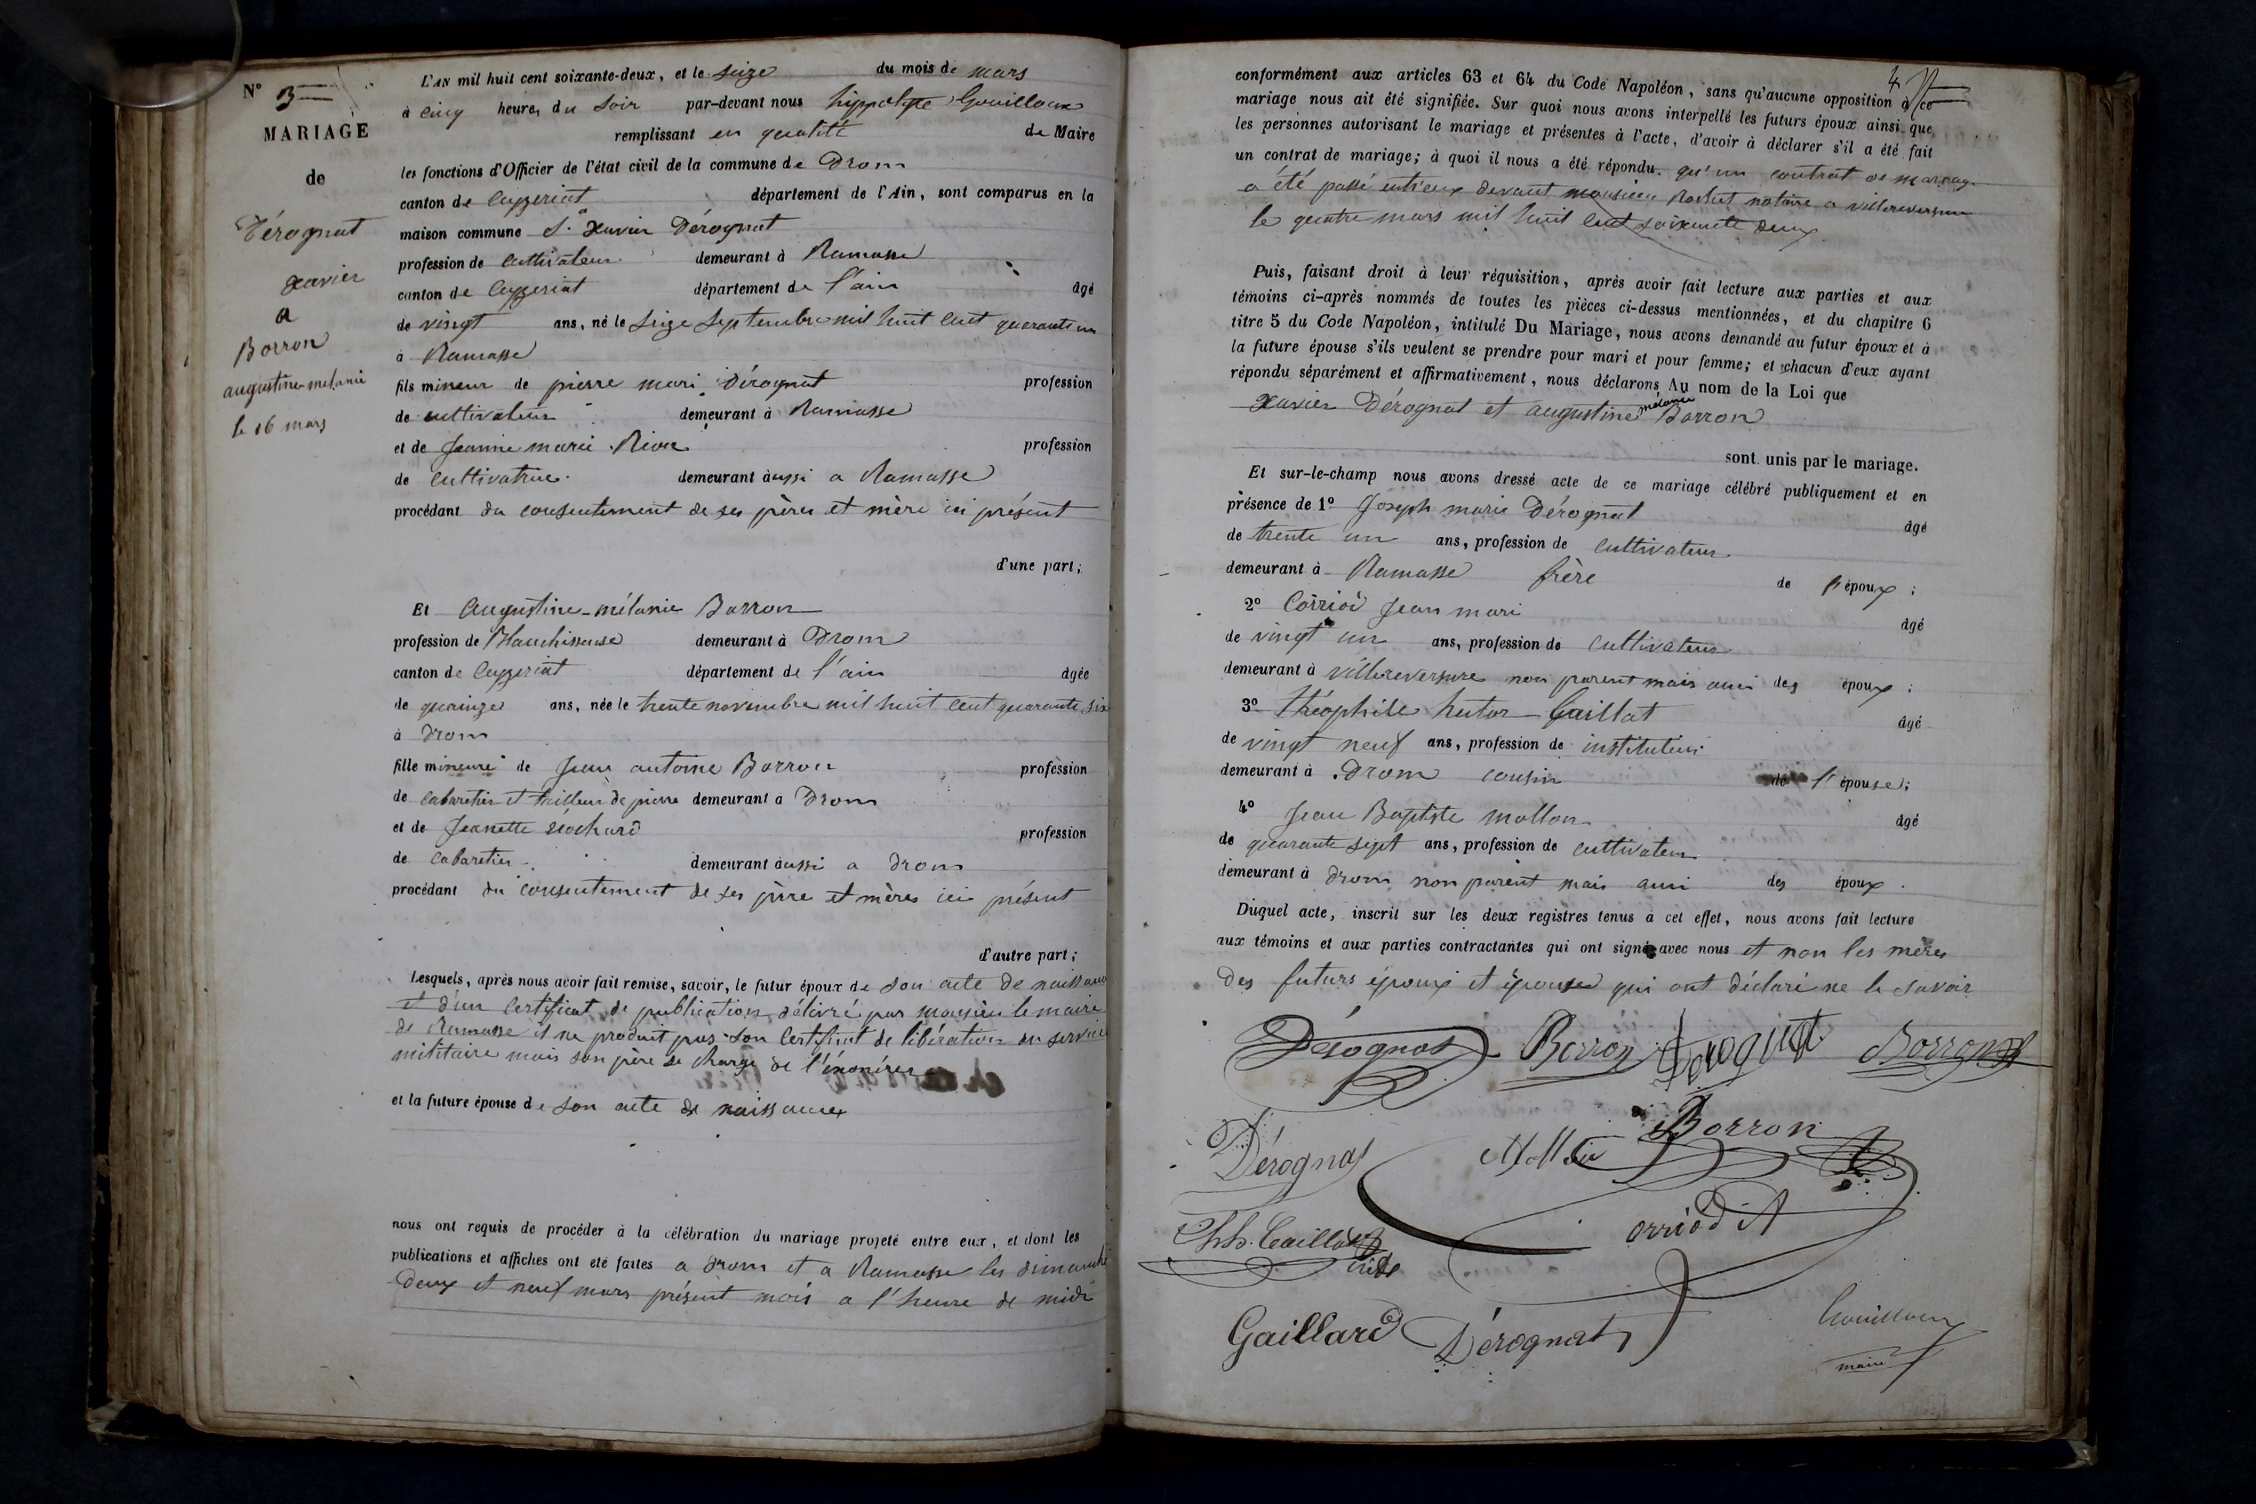 N° 3
MARIAGE
de
Dérognat
xavier
a
Borron
augustine melanie
le 16 mars
L'AN mil huit cent soixante-deux, et le seize du mois de mars
à cinq heures du soir par-devant nous hippolyte Gouilloux
remplissant en qualité de Maire
les fonctions d'Officier de l'état civil de la commune de Drom
canton de Ceyzeriat département de l'Ain, sont comparus en la
maison commune Sr xavier Dérognat
profession de cultivateur demeurant à Ramasse
canton de Ceyzeriat département de l'ain âgé
de vingt ans, né le seize septembre mil huit cent quarante un
à Ramasse
fils mineur de pierre mari Dérognat profession
de cultivateur demeurant à Ramasse
et de Jeanne marie profession
de cultivatrice demeurant aussi a Ramasse
procédant du consentement de ses pères et mère ici présent
d'une part;
Et Augustine-mélanie Borron
profession de Blanchisseuse demeurant à Drom
canton de Ceyzeriat département de l'ain âgée
de quinze ans, née le trente novembre mil huit cent quarante six
à Drom
fille mineure de Jean antoine Borron profession
de cabaretier et tailleur de pierre demeurant a Drom
et de Jeanette profession
de cabaretier demeurant aussi a Drom
procédant du consentement de ses père et mères ici présent
d'autre part;
Lesquels, après nous avoir fait remise, savoir, le futur époux de son acte de naissance
et d'un certificat de publication délivré par monsieur le maire
de Ramasse il ne produit pas son certificat de libération du service
militaire mais son père se charge de l'éxonérer
et la future épouse de son acte de naissance
nous ont requis de procéder à la célébration du mariage projeté entre eux, et dont les
publications et affiches ont été faites a Drom et a Ramasse les dimanche
deux et neuf mars présent mois a l'heure de midi
4
conformément aux articles 63 et 64 du Code Napoléon, sans qu'aucune opposition à ce
mariage nous ait été signifiée. Sur quoi nous avons interpellé les futurs époux ainsi que
les personnes autorisant le mariage et présentes à l'acte, d'avoir à déclarer s'il a été fait
un contrat de mariage; à quoi il nous a été répondu qu'un contrat de mariage
a été passé entr'eux devant monsieur notaire a villereversure
le quatre mars mil huit cent soixante deux
Puis, faisant droit à leur réquisition, après avoir fait lecture aux parties et aux
témoins ci-après nommés de toutes les pièces ci-dessus mentionnées, et du chapitre 6
titre 5 du Code Napoléon, intitulé Du Mariage, nous avons demandé au futur époux et à
la future épouse s'ils veulent se prendre pour mari et pour femme; et chacun d'eux ayant
répondu séparément et affirmativement, nous déclarons Au nom de la Loi que
xavier Dérognat et augustine mélanie Borron
sont unis par le mariage.
Et sur-le-champ nous avons dressé acte de ce mariage célébré publiquement et en
présence de 1° Joseph marie Dérognat âgé
de trente un ans, profession de cultivateur
demeurant à Ramasse frère de l'époux;
2° Corriod Jean mari âgé
de vingt un ans, profession de cultivateur
demeurant à villereversure non parent mais ami des époux;
3° théophile hector Gaillat âgé
de vingt neuf ans, profession de instituteur
demeurant à Drom cousin de l'épouse;
4° Jean Baptiste mollon âgé
de quarante sept ans, profession de cultivateur
demeurant à Drom non parent mais ami des époux.
Duquel acte, inscrit sur les deux registres tenus à cet effet, nous avons fait lecture
aux témoins et aux parties contractantes qui ont signé avec nous et non les mères
des futurs époux et épouse qui ont déclaré ne le savoir
Dérognat Borron Dérognat Borron
Borron
Dérognat Mollon
orriod
Th h. Caillat
Gaillard Dérognat Gouilloux
maire